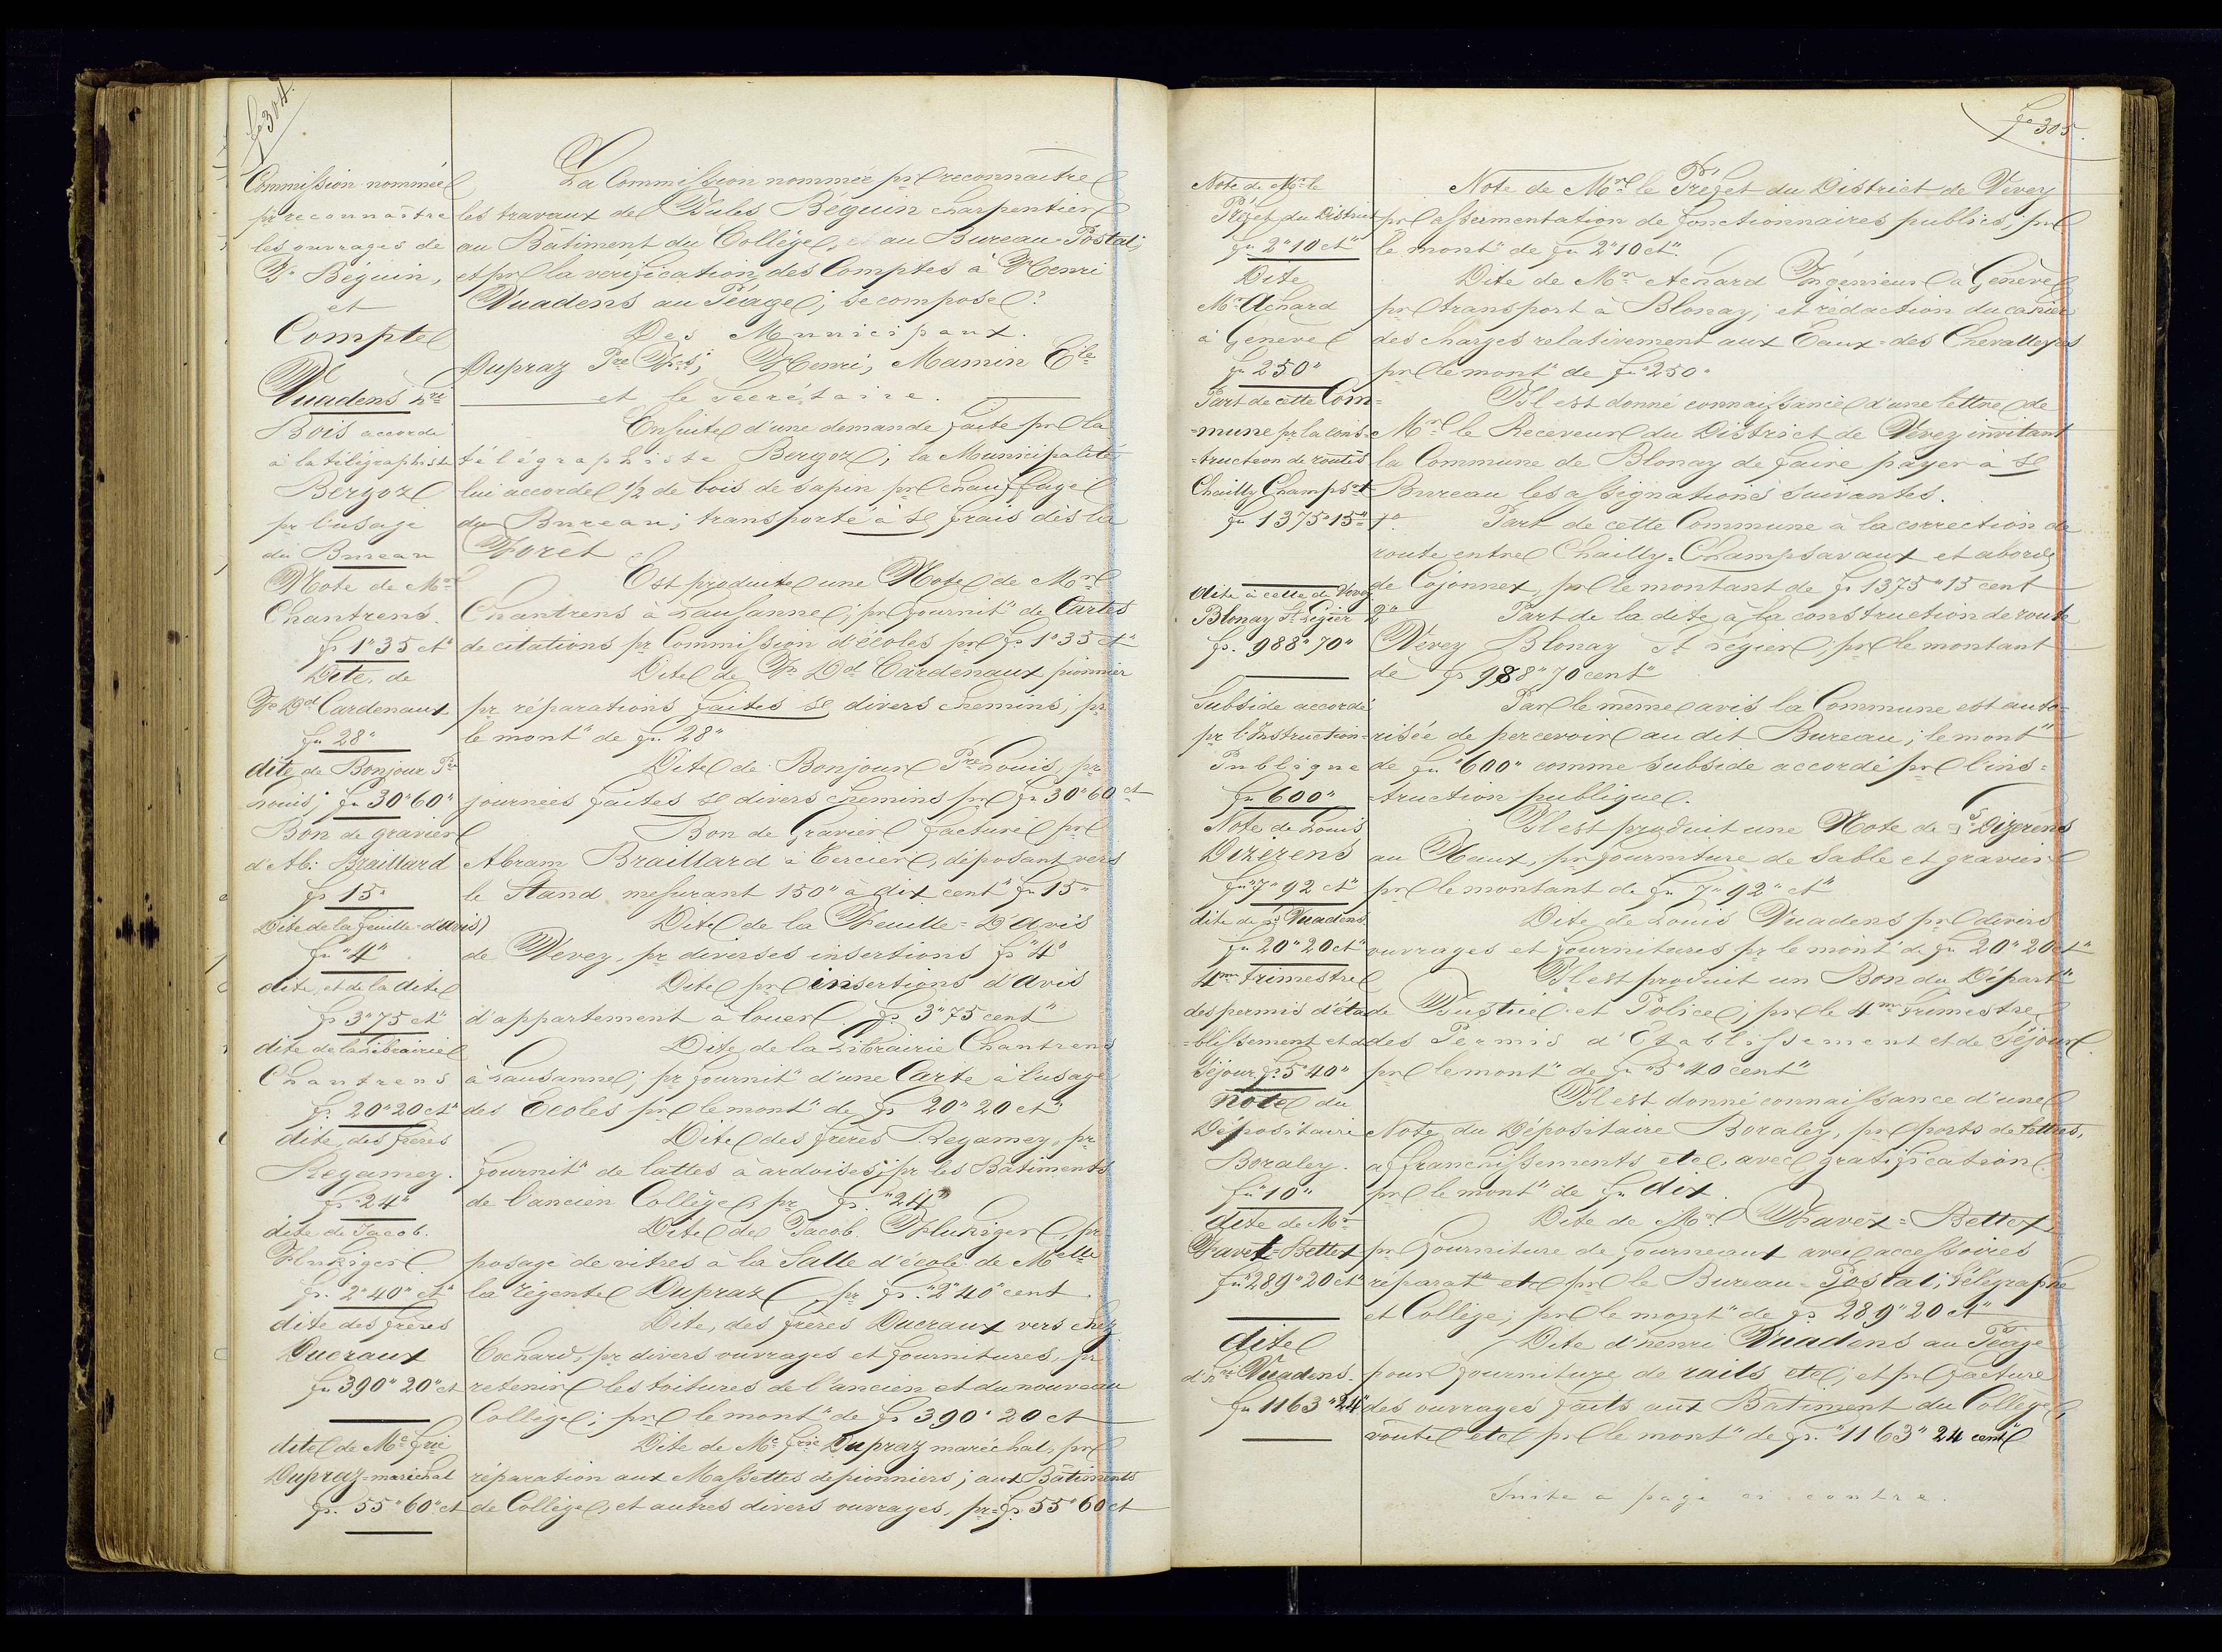 fo 304.
Commission nommée
pr reconnaître
les ouvrages de
Js Béguin,
et
Compte
Vuadens hri
Bois accordé
à la télégraphiste
Bergoz
pr l'usage
du Bureau
Note de Mr
Chantrens.
fr 1"35 ct
Dite, de
Fs Dd Cardenaux
fr 28"
dite de Bonjour Pre
Louis; fr 30"60"
Bon de gravier
d'Ab: Braillard
fr 15"
Dite de la feuille=d'avis
fr "4"
dite, et de la dite
fr 3"75 ct"
dite de la Librairie
Chantrens
fr. 20"20 ct"
dite, des frères
Regamey.
fr "24"
dite de Jacob.
Flukiger
fr. 2"40" ct"
dite des frères
Ducraux
fr 390"20" ct
dite de Mc frie
Dupraz=maréchal
fr. 55"60" ct
La Commission nommée pr reconnaître
les travaux de Jules Béguin charpentier
au Bâtiment du Collège, et au Bureau=Postal;
et pr la vérification des Comptes à Henri
Vuadens au Péage; se compose:
Des Municipaux.
Dupraz Pre Fçs; Henri, Mamin Eile
et le Secrétaire.
Ensuite d'une demande faite pr la
télégraphiste Bergoz; la Municipalité
lui accorde 1/2 de bois de sapin pr chauffage
du Bureau; transporté à se frais dès la
Forêt
Est produite une Note de Mr
Chantrens à Lausanne; pr fournit" de Cartes
de citations pr Commission d'écoles pr fr 1"35 ct"
Dite de Fs Dd Cardenaux pionnier
pr réparations faites se divers chemins, pr
le mont" de fr 28"
Dite de Bonjour Pre Louis, pr
journées faites se divers chemins pr fr 30"60 ct
Bon de Gravier facturé pr
Abram Braillard à Tercier, déposant vers
le Stand mesurant 150" à dix cent" fr 15"
Dite de la Feuille=D'avis
de Vevey, pr diverses insertions fr "4"
Dite pr insertions d'avis
d'appartement à louer fr 3"75 cent"
Dite de la Librairie Chantrens
à Lausanne; pr fournit" d'une Carte à l'usage
des Ecoles pr le mont" de fr 20"20 ct"
Dite des frères Regamey, pr
fournit" de lattes à ardoises; pr les Bâtiments
de l'ancien Collège, pr fr. "24"
Dite de Jacob. Flukiger, pr
posage de vitres à la Salle d'école de Melle
la régente Dupraz, pr fr. "2"40" cent.
Dite, des frères Ducraux vers chez
Cochard, pr divers ouvrages et fournitures, pr
retenir les toitures de l'ancien et du nouveau
Collège; pr le mont" de fr 390"20 ct
Dite de Mc frie Dupraz maréchal, pr
réparation aux Massettes de pionniers; aux Bâtiments
de Collège, et autres divers ouvrages, pr=fr 55"60 ct
fo 305.
Note de Mr le
Préfet du District
fr 2"10 ct"
Dite
Mr Achard
à Genève
fr 250"
Part de cette Com=
=mune pr la cons=
=truction de routes
Chailly Champst
fr 1375"15"
dite à celle de Vevey
Blonay St Légier
fr. 988"70"
Subside accordé
pr l'Instruction=
Publique
fr 600"
Note de Louis
Dizerens
fr "7"92 ct"
dite de Ls Vuadens
fr 20"20 ct"
4me trimestre
des permis d'éta
=blissement et de
Séjour fr 5"40"
Note du
Dépositaire
Boraley.
fr "10"
dite de Mr
Favex=Bettex
fr "289"20 ct"
dite
d'hri Vuadens.
fr 1163"24"
Note de Mr le Préfet du District de Vevey
pr assermentation de fonctionnaires publics; pr
le mont" de fr 2"10 ct".
Dite de Mr Achard Ingénieur à Genève
pr transport à Blonay; et rédaction du cahier
des charges relativement aux Eaux=des Chevalleyres
pr le mont" de fr "250"
Il est donné connaissance d'une lettre de
Mr le Receveur du District de Vevey invitant
la Commune de Blonay de faire payer à se
Bureau les assignations suivantes.
1° Part de cette Commune à la correction de
route entre Chailly=Champsavaux et abords
de Cojonnex, pr le montant de fr 1375"15 cent
2° Part de la dite, à la construction de route
Vevey Blonay St Légier, pr le montant
de fr 988"70 cent"
Par le même avis la Commune est auto=
risée de percevoir au dit Bureau; le mont"
de fr "600" comme subside accordé pr l'ins=
=truction publique.
Il est produit une Note de Ls Dizerens
au Haux, pr fourniture de Sable et gravier
pr le montant de fr 7"92" ct"
Dite de Louis Vuadens pr divers
ouvrages et fournitures pr le mont" de fr 20"20 ct"
Il est produit un Bon du Départ"
de Justice et Police; pr le 4me Trimestre
des Permis d'Etablissement et de Séjour.
pr le mont" de fr "5"40 cent"
Il est donné connaissance d'une
Note du Dépositaire Boraley, pr ports de lettres,
affranchissements etc, avec gratification
pr le mont" de fr dix.
Dite de Mr Favex=Bettex
pr fourniture de fourneaux avec accessoires
réparat" etc pr le Bureau=Postal; Télégraphe
et Collège; pr le mont" de fr 289"20 ct"
Dite d'henri Vuadens au Péage
pour fourniture de rails etc; et pr facture
des ouvrages faits aux Bâtiment du Collège,
route etc pr le mont" de fr. "1163"24 cent
Suite a page ci contre.